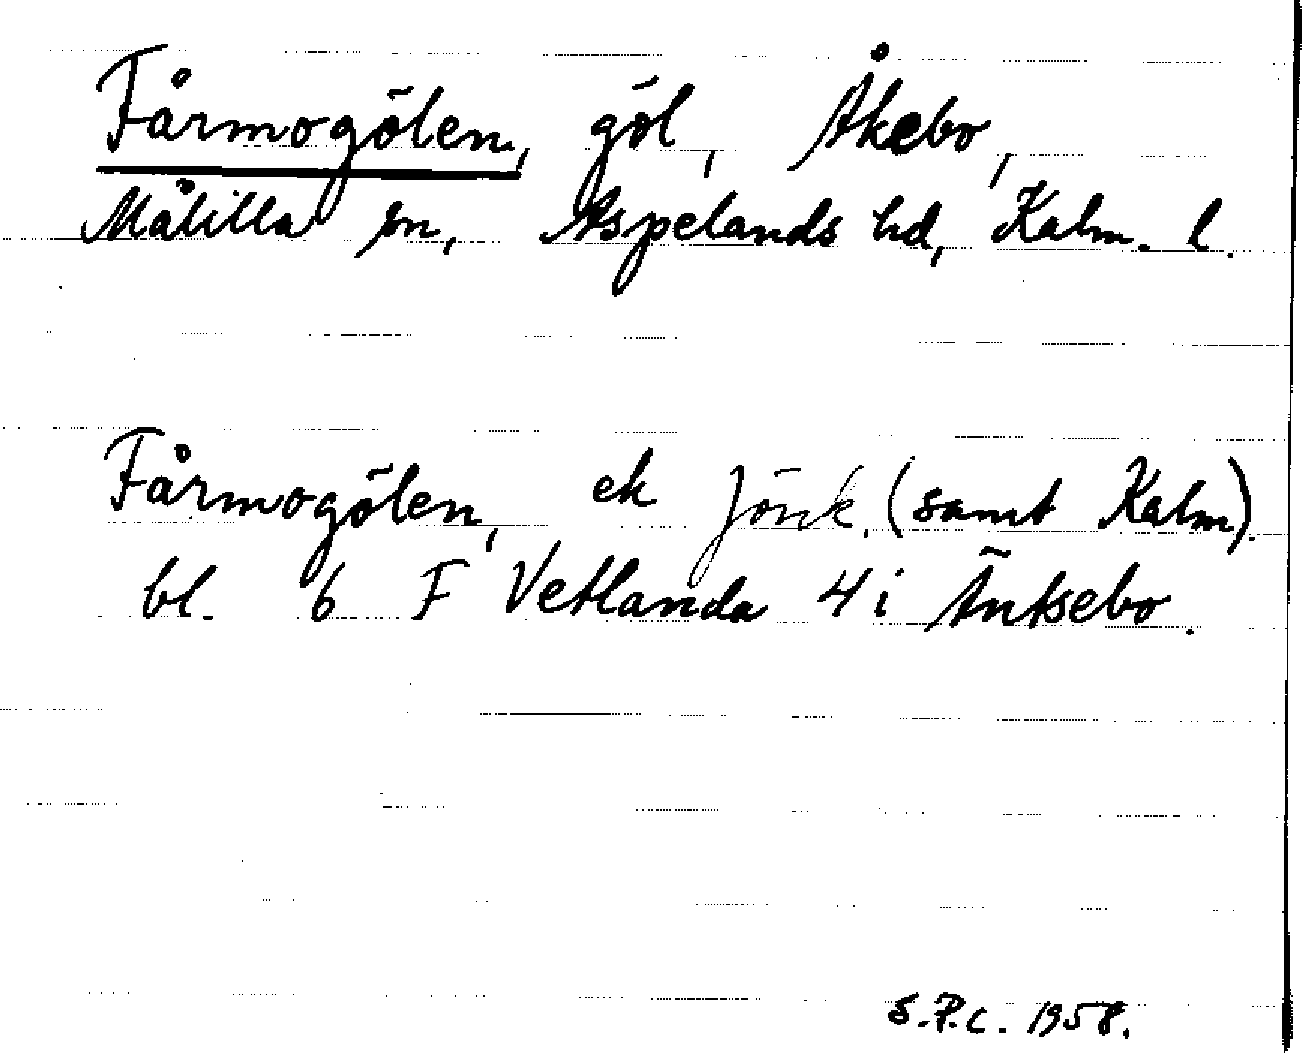 Fårmogölen, göl, Åkebo,
Målilla sn, Aspelands hd, Kalm. l.
Fårmogölen, ek Jönk. (samt Kalm).
bl. 6 F Vetlanda 4 i Äntsebo.
S.P.C. 1958.